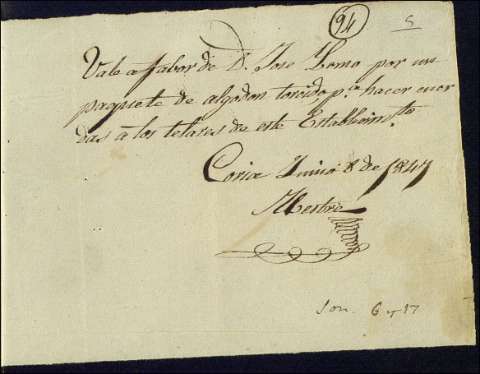 94 5
Vale a fabor de D. Jose Lomo por un
paquete de algodon torcido, p.ª hacer cuer
das a los telares de este Establecim.to
Coria Junio 8 de 1847
Mestre
6 y 17